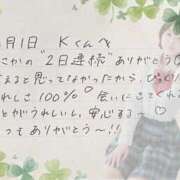 月1日 Kくんへ
さかの"2日連続"ありがとう♡
えると思ってなかったから、びっくり
れしさ100% 会いにきてくれ
とがうれしいし、安心する〜♡
つもありがとう〜!!